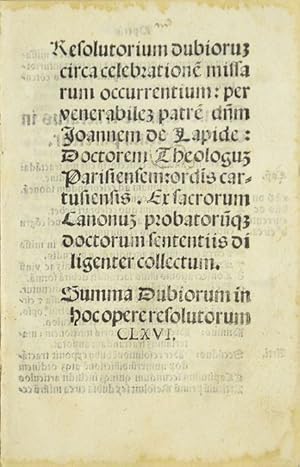 Resolutorium dubioruꝫ
circa celebrationē missa
rum occurrentium: per
venerabileꝫ patrē dn̄m
Joannem de Lapide:
Doctorem Theologuꝫ
Parisiensem: ordīs car-
tusiensis. Ex sacrorum
Canonuꝫ probatorūqꝫ
doctorum sententiis di
ligenter collectum.
Summa Dubiorum in
hoc opere resolutorum
CLXVI.